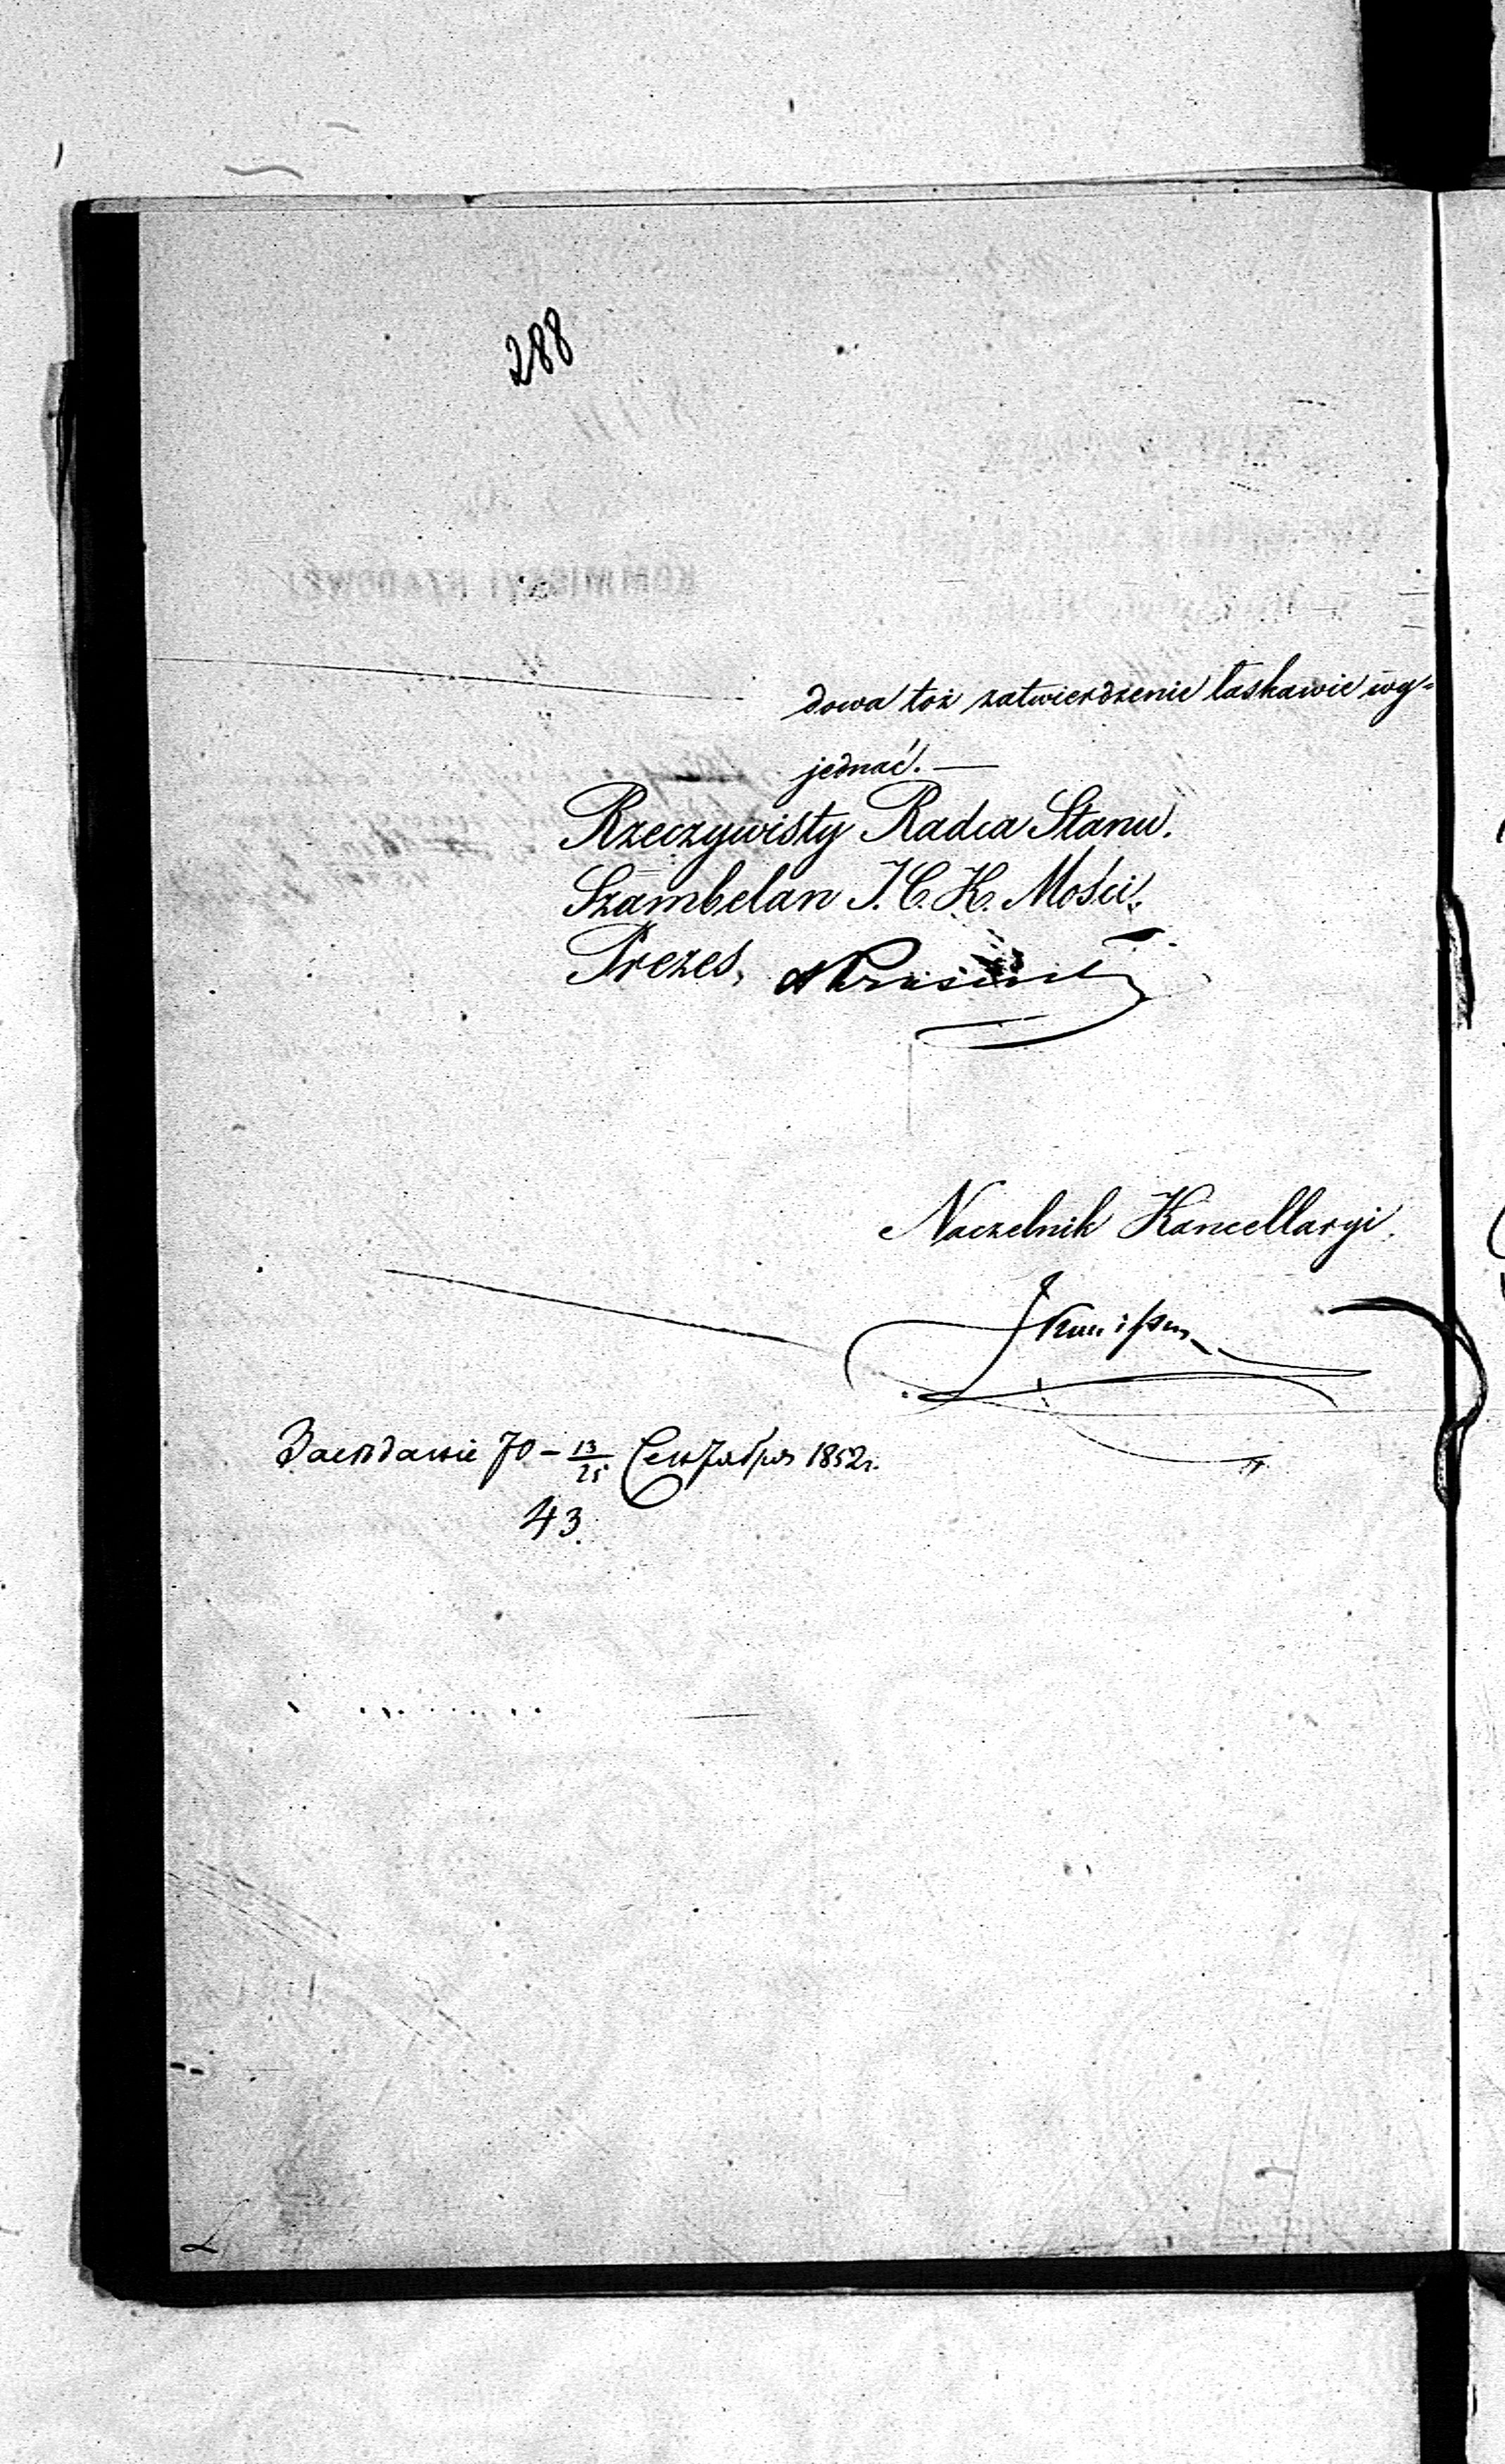 288
dowa toż zatwierdzenie łaskawie wy=
jednać. —
Rzeczywisty Radca Stanu.
Szambelan J. C. K. Mości.
Prezes,
Naczelnik Kancellaryi.
Засѣданіе 70 – 13/25 Сентября 1852 г.
43.